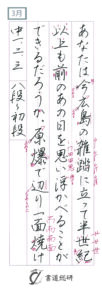 3月
あなたは今広島の雑踏に立って半世紀
以上も前のあの日を思い浮かべることが
できるだろうか。原爆で辺り一面焼け
中一・二・三 八段〜初段
書道総研